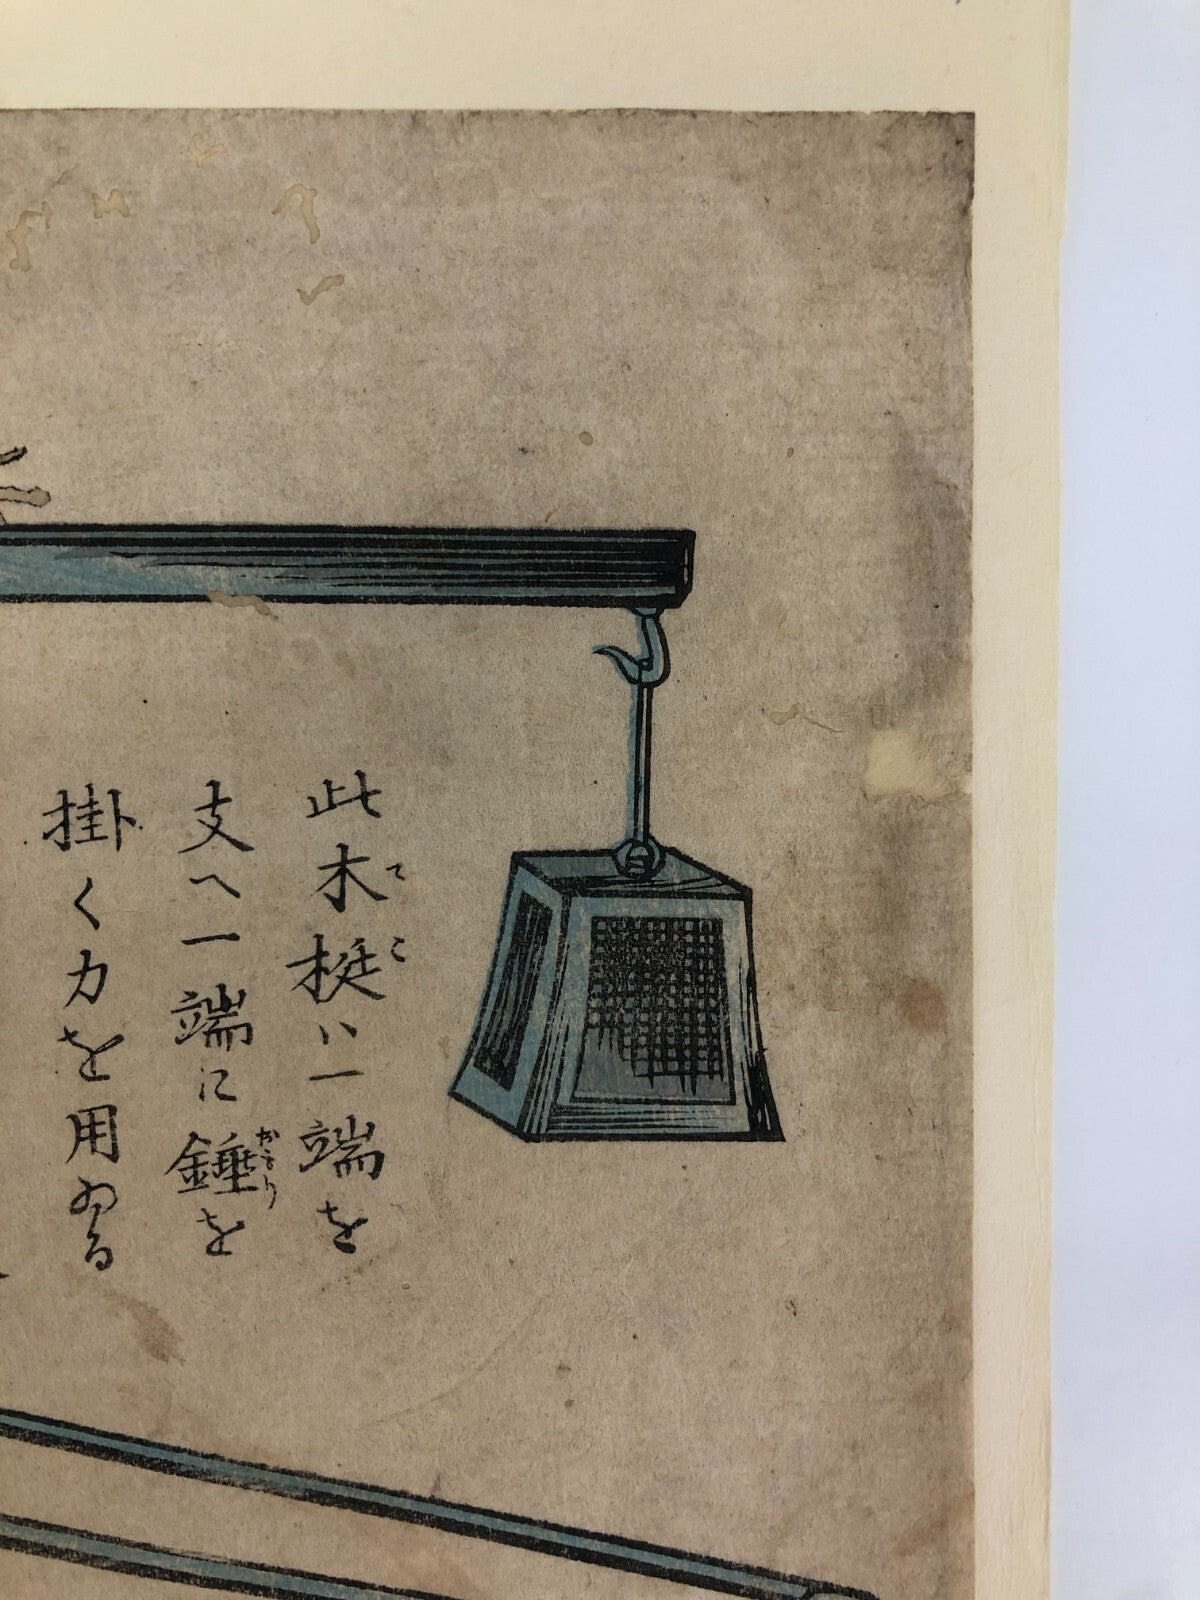 此木梃ハ一端を
てこ
支へ一端に錘を
おもり
掛く力を用ゐる